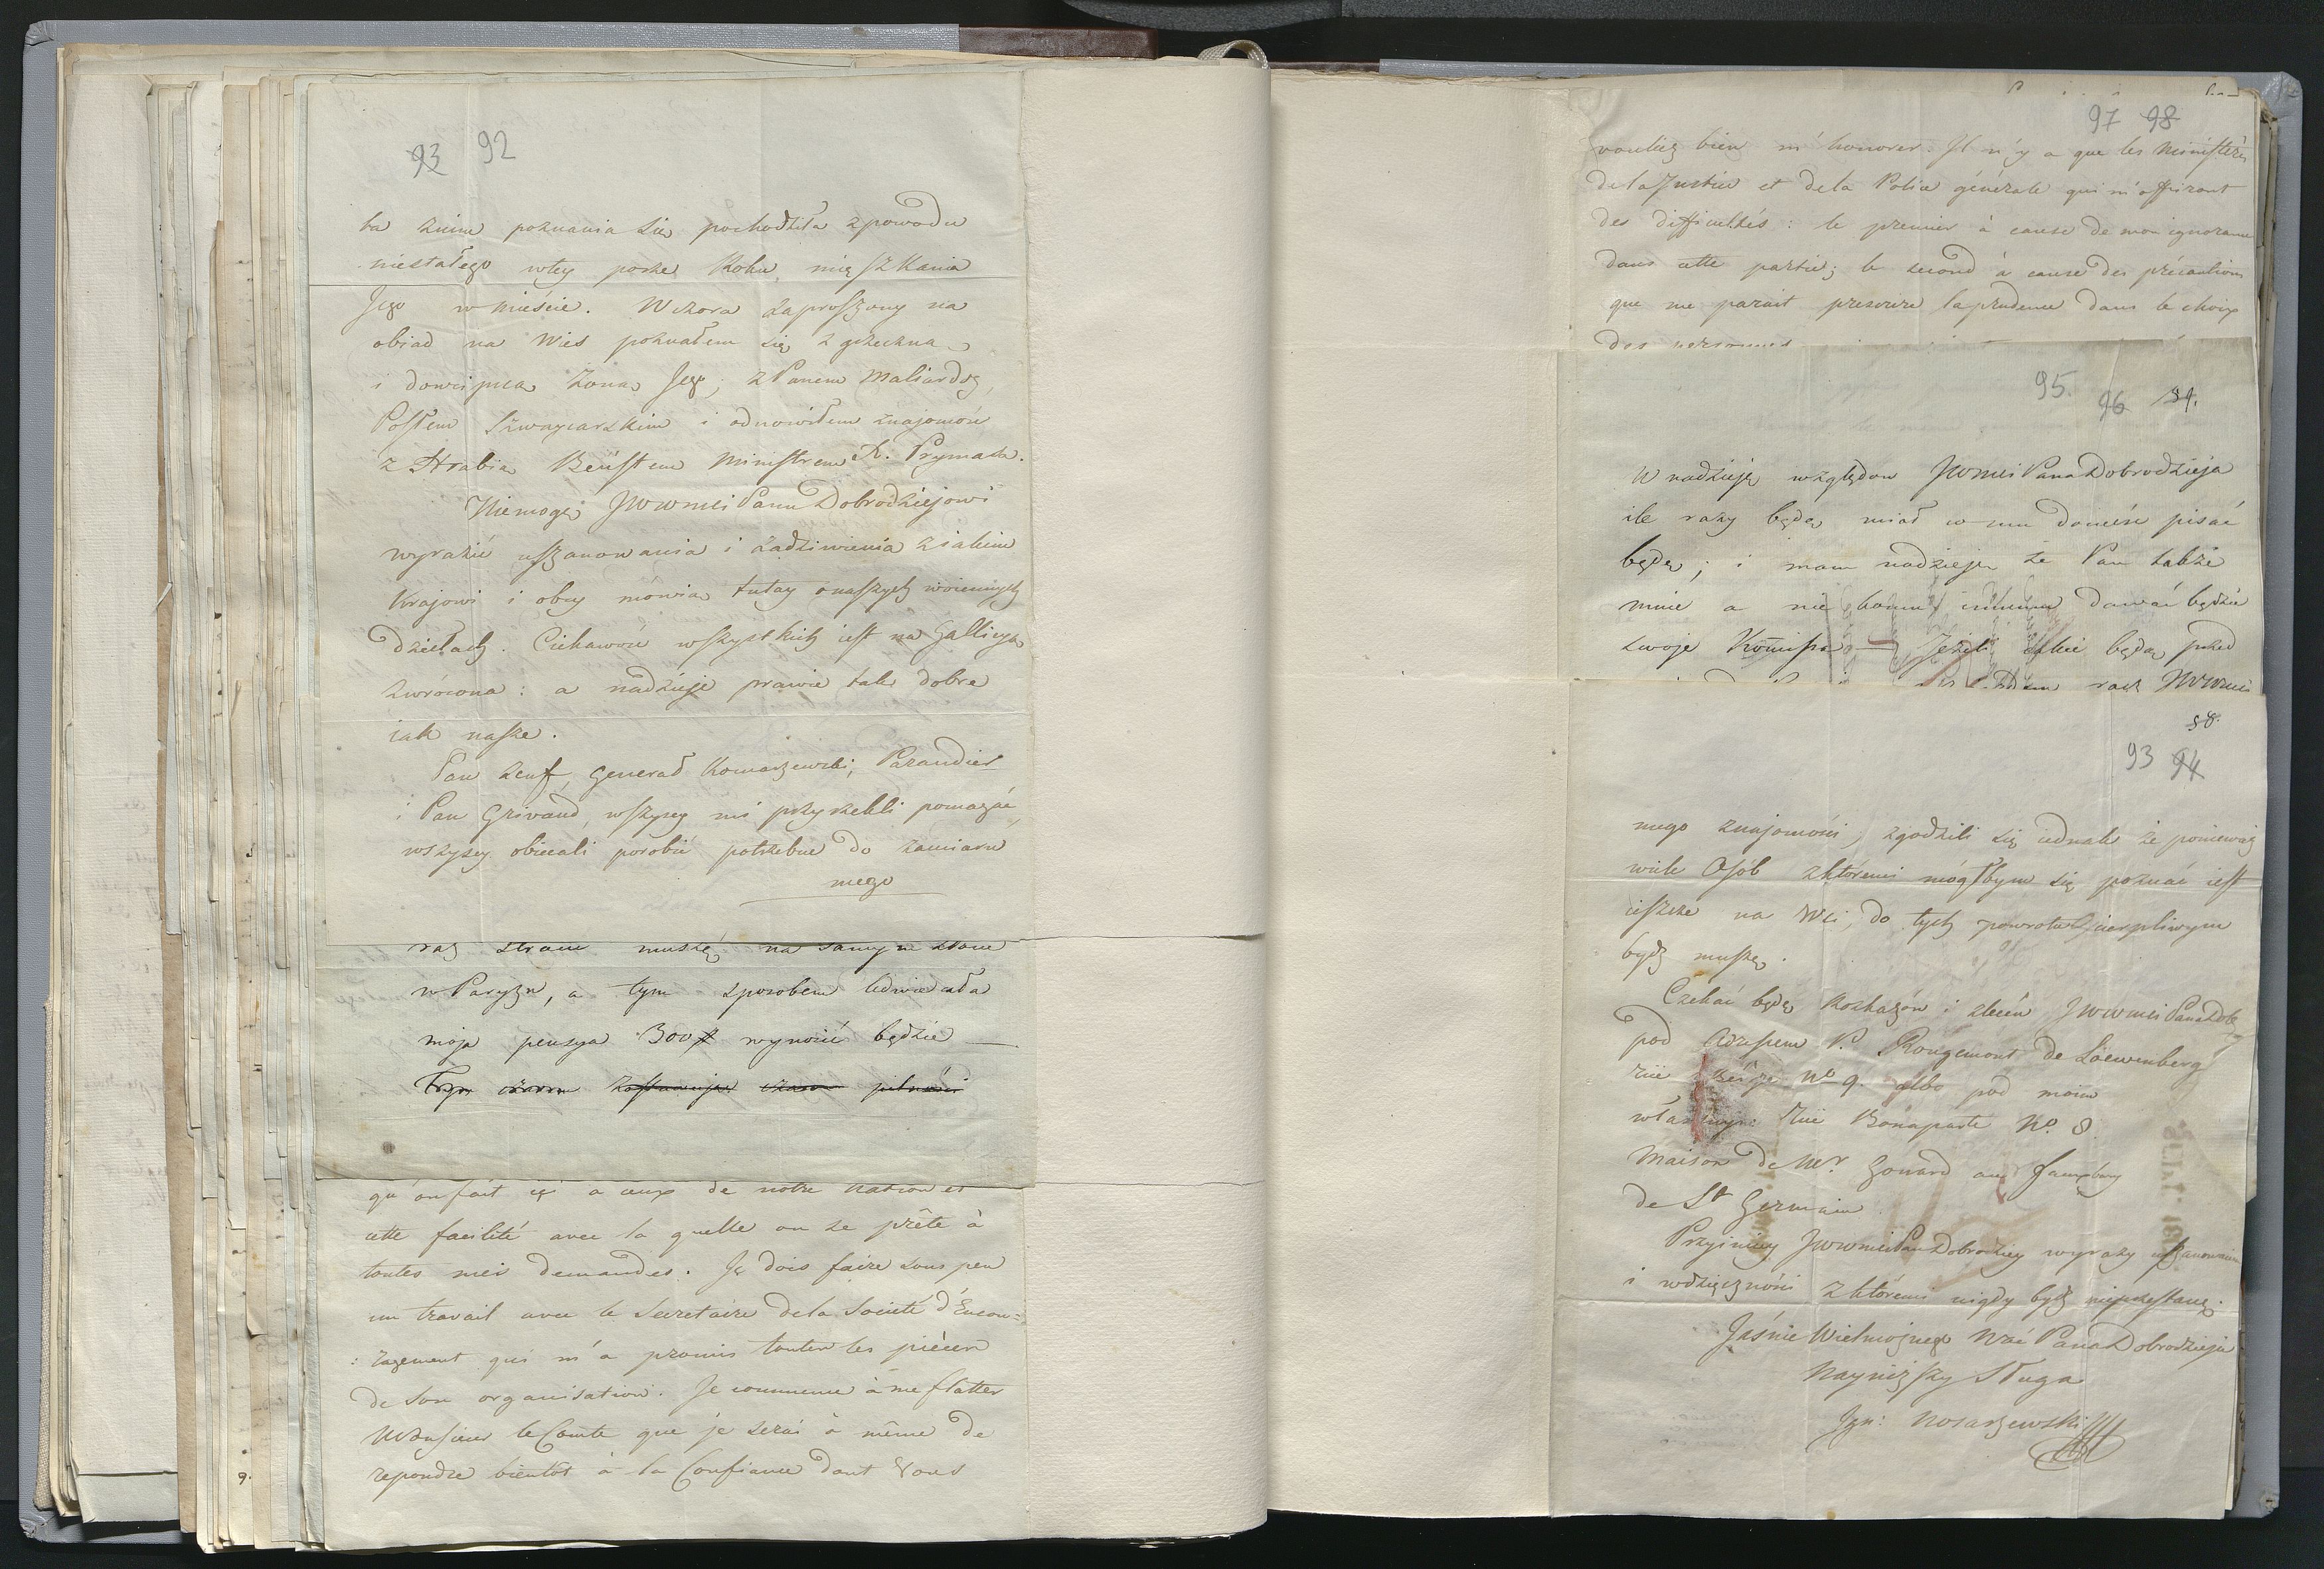 93 92
ba znim poznania się pochodziła z powodu
niestałego wtey porze Roku mięszkania
Jego w miescie. Wczora zaproszony na
obiad na Wies poznałem się z grzeczną
i dowcipną Żoną Jego; z Panem Maliardoz,
Posłem Szwaycarskim i odnowiłem znajomość
z Hrabią Beüstem Ministrem X. Prymasa.
Niemogę JWWmći Panu Dobrodziejowi
wyrazić uszanowania i zadziwienia z iakim
Krajowi i obcy mówią tutay o naszych woiennych
dziełach. Ciekawość wszystkich iest na Gallicyą
zwrócona: a nadzieje prawie tak dobre
iak nasze.
Pan Zeuf, Generał Komarzewski, Parandier
i Pan Grivaud, wszyscy mi przyrzekli pomagać,
wszyscy obiecali porobić potrzebne do zamiaru
mego
raz stracić muszę na samym
w Paryżu, a tym sposobem ledwie cała
moja pensya 300# wynosić będzie —
qu'on fait içi a ceux de notre nation et
cette facilité avec la quelle on se prête à
toutes mes demandes. Je dois faire sous peu
un travail avec le Secretaire de la Societé d'Encou=
:ragement qui m'a promis toutes les pièces
de son organisation. Je commence à me flatter
Monsieur le Comte que je serai à même de
repondre bientôt à la Confiance dont Vous
97 98
vouliez bien m'honorer. Il n'y a que les Ministères
de la Justice et de la Police générale qui m'offriront
des difficultés: le premier à cause de mon ignorance
dans cette partie; le second à cause des précautions
que me parait prescrire la prudence dans le choix
des personnes
95. 96 89.
W nadzieję względow JWMći Pana Dobrodzieja
ile razy będę miał co mu donieść pisać
będę; i mam nadzieję że Pan także
mnie a nie komu innemu dawać będzie
swoje Kom̃issa — Jeżeli będę przed
88.
93 94
mego znajomości, zgodzili się iednak że ponieważ
wiele Osób z któremi mógłbym się poznać iest
ieszcze na Wsi, do tych powrotu cierpliwym
bydź muszę.
Czekać będę rozkazów i zleceń JWWmći Pana Dob
pod Adressem P. Rougemont de Löewenberg
rüe No 9. albo pod moim
własnym: Rüe Bonaparte No. 8.
Maison de Mr. Gouard au Fauxbourg
de St Germain.
Przyimiey JWWmći Pan Dobrodziey wyrazy uszanowania
i wdzięczności z któremi nigdy bydź nieprzestanę.
Jaśnie Wielmożnego Wać Pana Dobrodzieja
Nayniższy Sługa
Ign: Nosarzewski